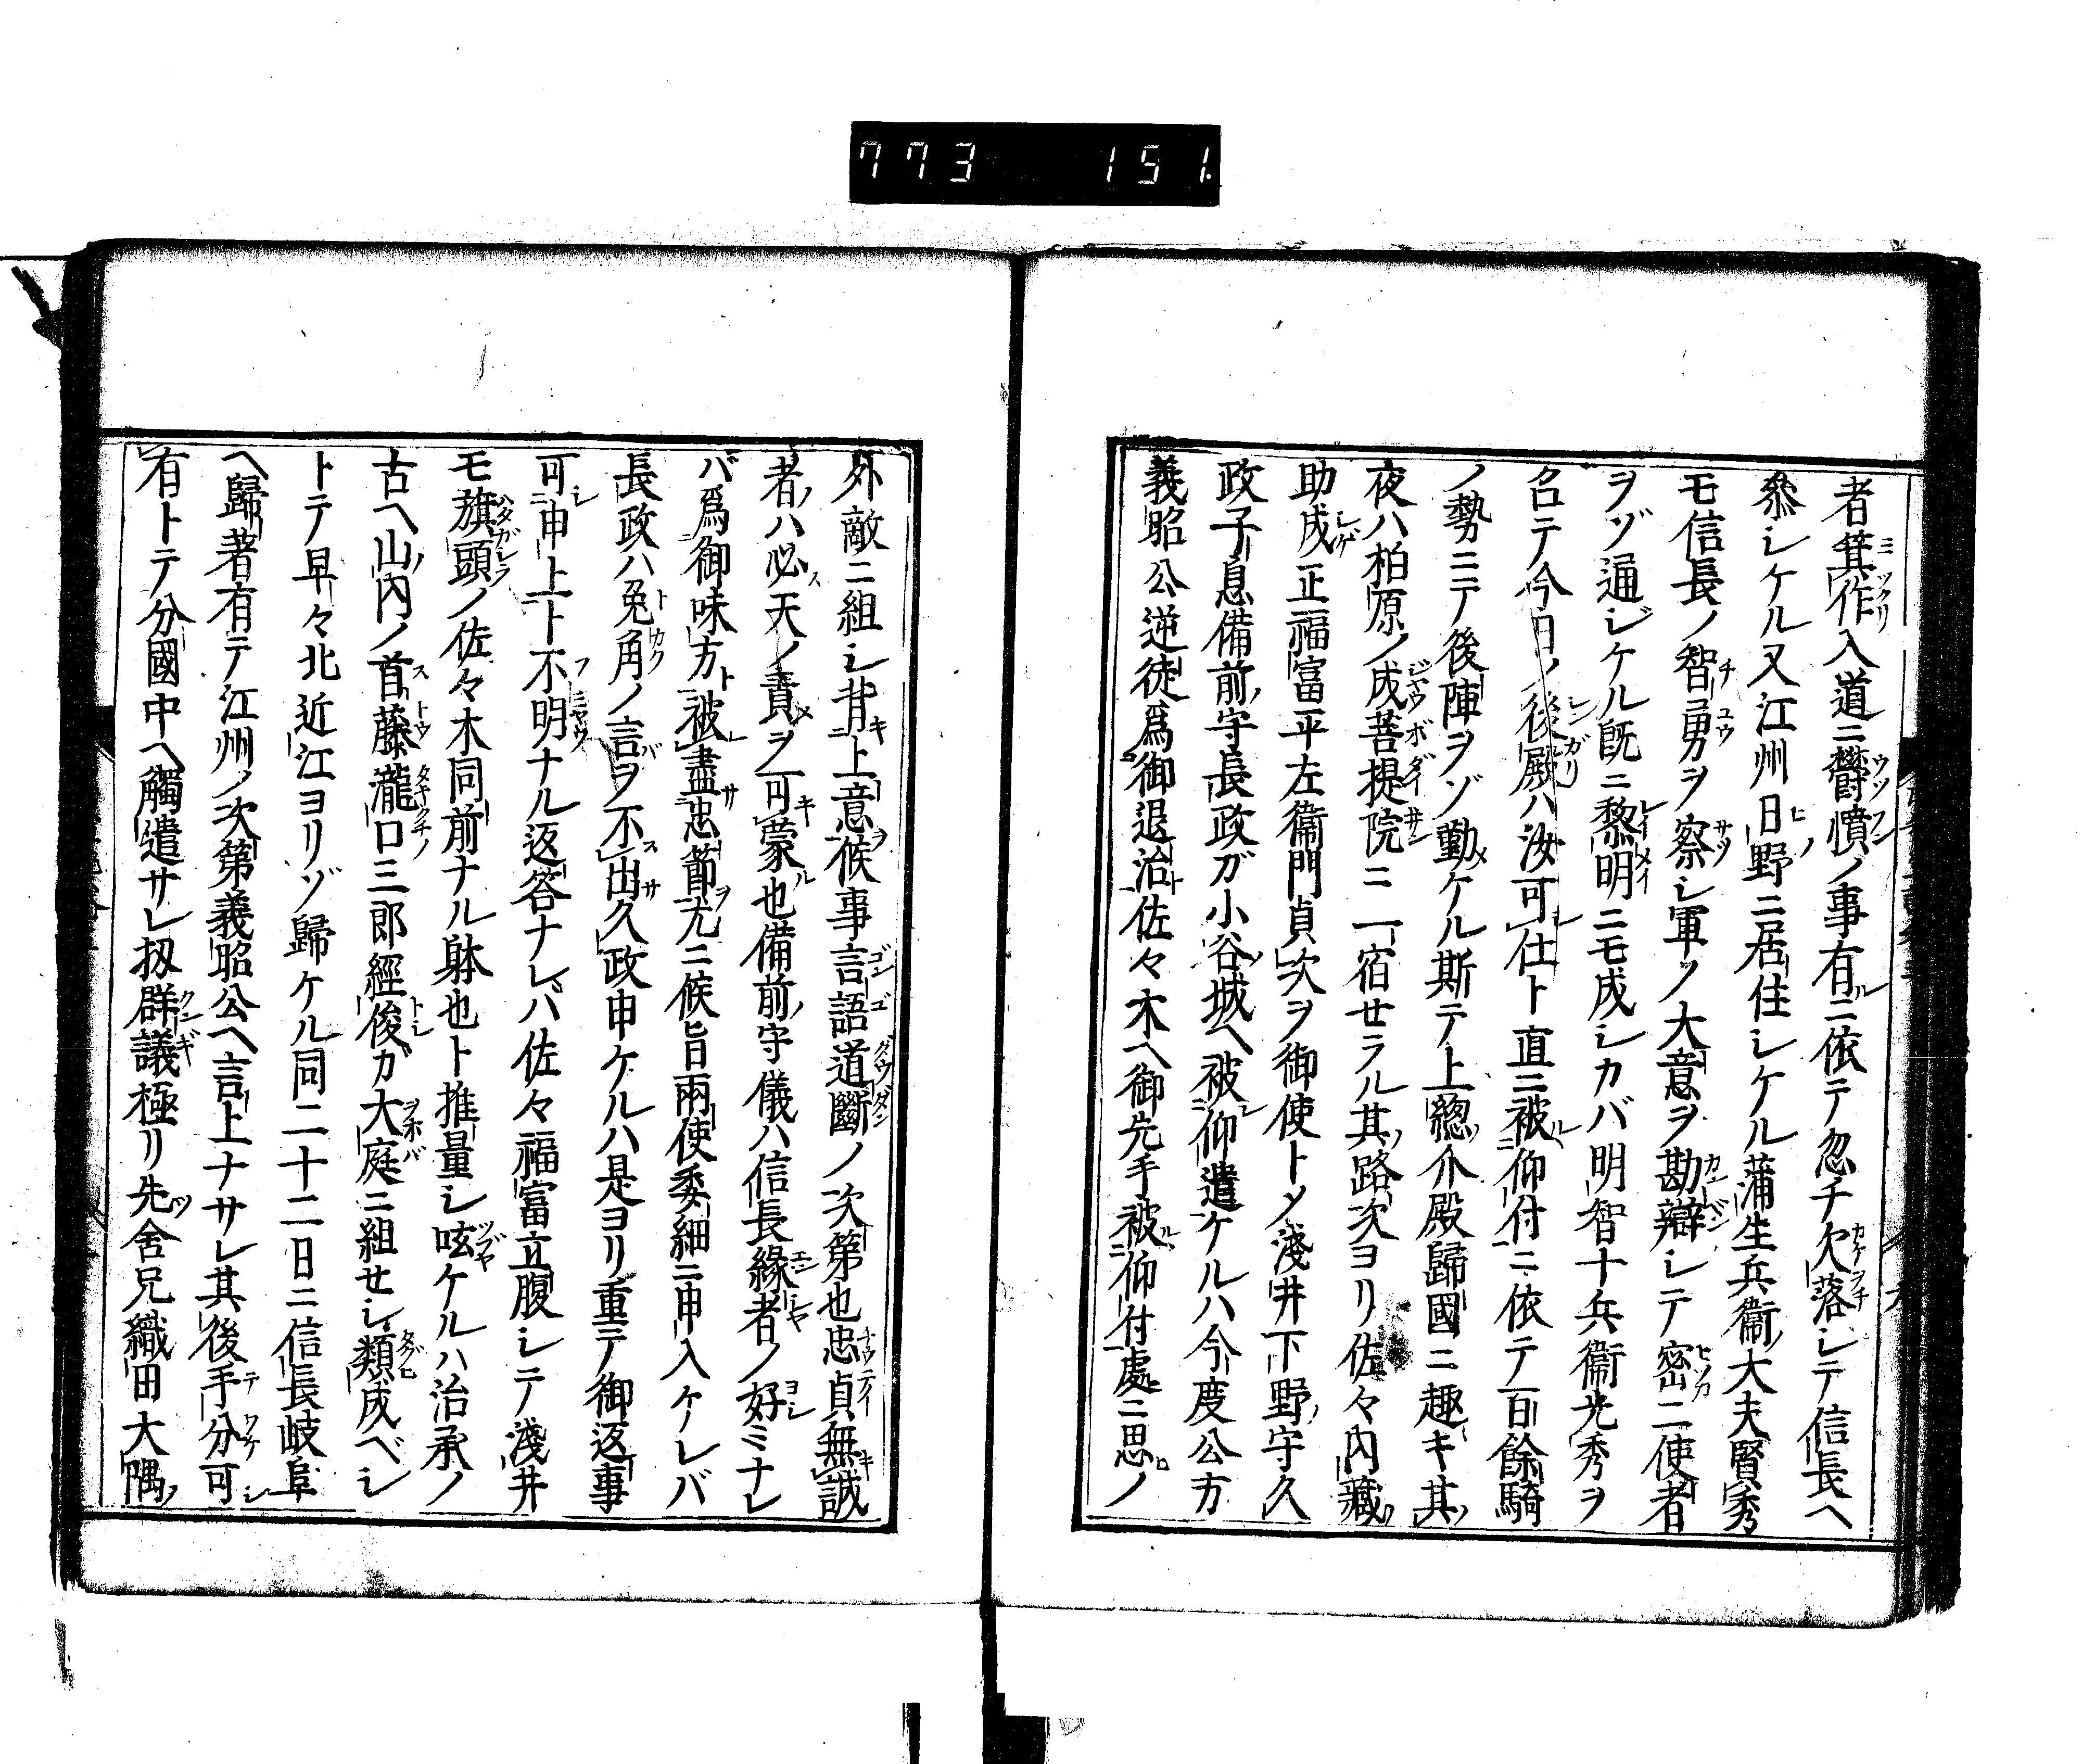 773 151.
者箕作入道ニ欝憤ノ事有ルニ依テ忽チ欠落シテ信長ヘ
參シケル又江州日野ニ居住シケル蒲生兵衞大夫賢秀
モ信長ノ智勇ヲ察シ軍ノ大意ヲ勘辯シテ密ニ使者
ヲゾ通ジケル既ニ黎明ニモ成シカバ明智十兵衞光秀ヲ
召テ今日ノ後殿ハ汝可仕ト直ニ被仰付ニ依テ百餘騎
ノ勢ニテ後陣ヲゾ勤メケル斯テ上總介殿歸國ニ趣キ其
夜ハ柏原ノ成菩提院ニ一宿セラル其路次ヨリ佐々内藏
助成正福富平左衞門貞次ヲ御使トメ淺井下野守久
政子息備前守長政ガ小谷城ヘ被仰遣ケルハ今度公方
義昭公逆徒爲御退治佐々木ヘ御先手被仰付處ニ思ノ
外敵ニ組シ背上意候事言語道斷ノ次第也忠貞無誠
者ハ必天ノ責ヲ可蒙也備前守儀ハ信長緣者ノ好ミナレ
バ爲御味方被盡忠節尤ニ候旨兩使委細ニ申入ケレバ
長政ハ兔角ノ言ヲ不出久政申ケルハ是ヨリ重テ御返事
可申上ト不明ナル返答ナレバ佐々福富立腹シテ淺井
モ旗頭ノ佐々木同前ナル躰也ト推量シ呟ケルハ治承ノ
古ヘ山内ノ首藤瀧口三郎經俊ガ大庭ニ組セシ類成ベシ
トテ早々北近江ヨリゾ歸ケル同二十二日ニ信長岐阜
ヘ歸著有テ江州ノ次第義昭公ヘ言上ナサレ其後手分可
有トテ分國中ヘ觸遣サレ扨群議極リ先舍兄織田大隅